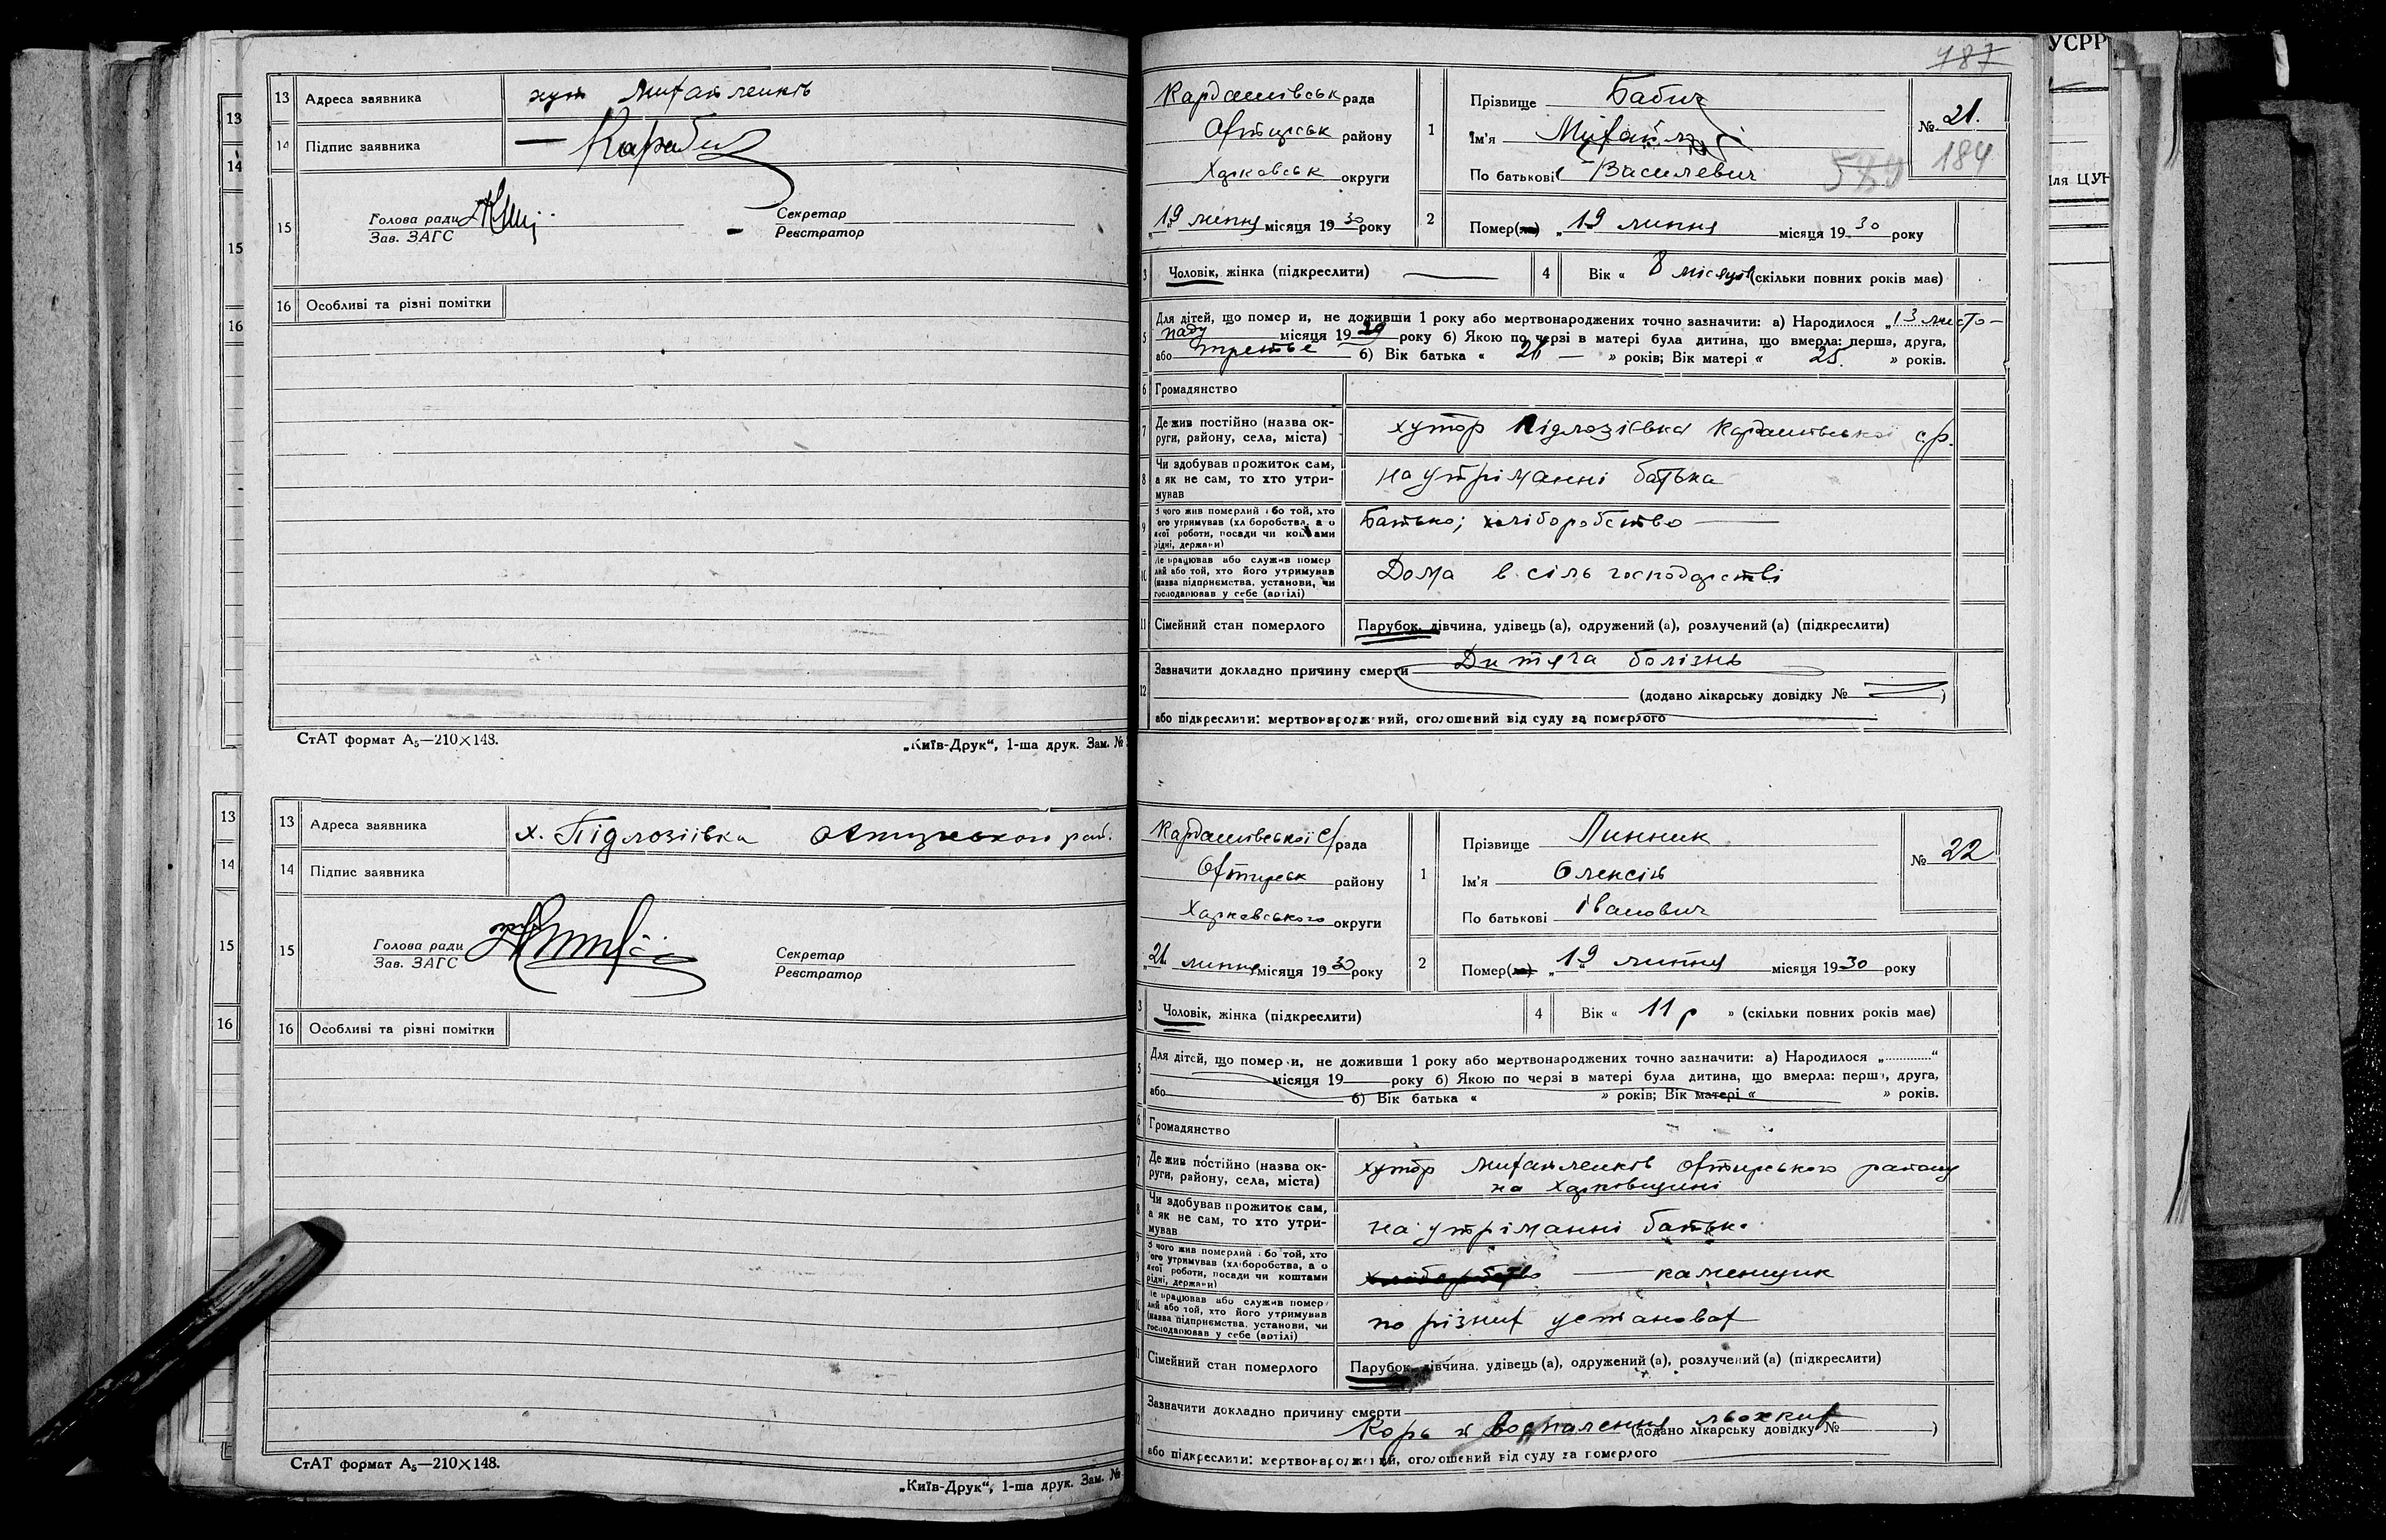 13 Адреса заявника хут Михайленків
14 Підпис заявника
15 Голова ради
Зав. ЗАГС
Секретар
Реєстратор
16 Особливі та різні помітки
СтАТ формат А5—210×148.
„Київ-Друк“, 1-ша друк. Зам. №
13 Адреса заявника х. Підлозіївка Охтирського рай.
14 Підпис заявника
15 Голова ради
Зав. ЗАГС
Секретар
Реєстратор
16 Особливі та різні помітки
СтАТ формат А5—210×148.
„Київ-Друк“, 1-ша друк. Зам. №
787
Кардашівськ рада
Охтирськ району
Харковськ округи
1 Прізвище Бабич
Ім'я Михайло
По батькові Василевич
№ 21.
184
589
„19 липня місяця 1930 року
2 Помер(ла) „19 липня місяця 1930 року
3 Чоловік, жінка (підкреслити)
4 Вік « 8 місяців (скільки повних років має)
5 Для дітей, що померли, не доживши 1 року або мертвонароджених точно зазначити: а) Народилося „13 листо-
паду місяця 1929 року б) Якою по черзі в матері була дитина, що вмерла: перша, друга,
або третье б) Вік батька « 26 — » років; Вік матері « 25. » років.
6 Громадянство
7 Де жив постійно (назва ок-
руги, району, села, міста)
хутор Підлозіївка Кардашівської с/р.
8 Чи здобував прожиток сам,
а як не сам, то хто утри-
мував
на утріманні батька
9 З чого жив померлий або той, хто
його утримував (хліборобства, з
якої роботи, посади чи коштами
рідні, держави)
Батько; хліборобство
10 Де працював або служив помер
лий або той, хто його утримував
(назва підприємства, установи, чи
господарював у себе (артілі)
Дома в сіль господарстві
11 Сімейний стан померлого Парубок, дівчина, удівець (а), одружений (а), розлучений (а) (підкреслити)
12 Зазначити докладно причину смерти Дитяча болізнь
(додано лікарську довідку № )
або підкреслити: мертвонароджений, оголошений від суду за померлого
Кардашівської С/рада
Охтирськ району
Харковського округи
1 Прізвище Линник
Ім'я Олексій
По батькові Іванович
№ 22
„21 липня місяця 1930 року
2 Помер(ла) „19 липня місяця 1930 року
3 Чоловік, жінка (підкреслити)
4 Вік « 11 р » (скільки повних років має)
5 Для дітей, що померли, не доживши 1 року або мертвонароджених точно зазначити: а) Народилося „............“
місяця 19 року б) Якою по черзі в матері була дитина, що вмерла: перша, друга,
або б) Вік батька « » років; Вік матері « » років.
6 Громадянство
7 Де жив постійно (назва ок-
руги, району, села, міста)
хутор Михайленків Охтирського району
на Харковщині
8 Чи здобував прожиток сам,
а як не сам, то хто утри-
мував
на утріманні батька
9 З чого жив померлий або той, хто
його утримував (хліборобства, з
якої роботи, посади чи коштами
рідні, держави)
хліборобство — каменщик
10 Де працював або служив помер
лий або той, хто його утримував
(назва підприємства, установи, чи
господарював у себе (артілі)
по різних установах
11 Сімейний стан померлого Парубок, дівчина, удівець (а), одружений (а), розлучений (а) (підкреслити)
12 Зазначити докладно причину смерти
Корь и воспаления льохких (додано лікарську довідку № )
або підкреслити: мертвонароджений, оголошений від суду за померлого
УСРР
для ЦУН
13
14
15
16
13
14
15
16